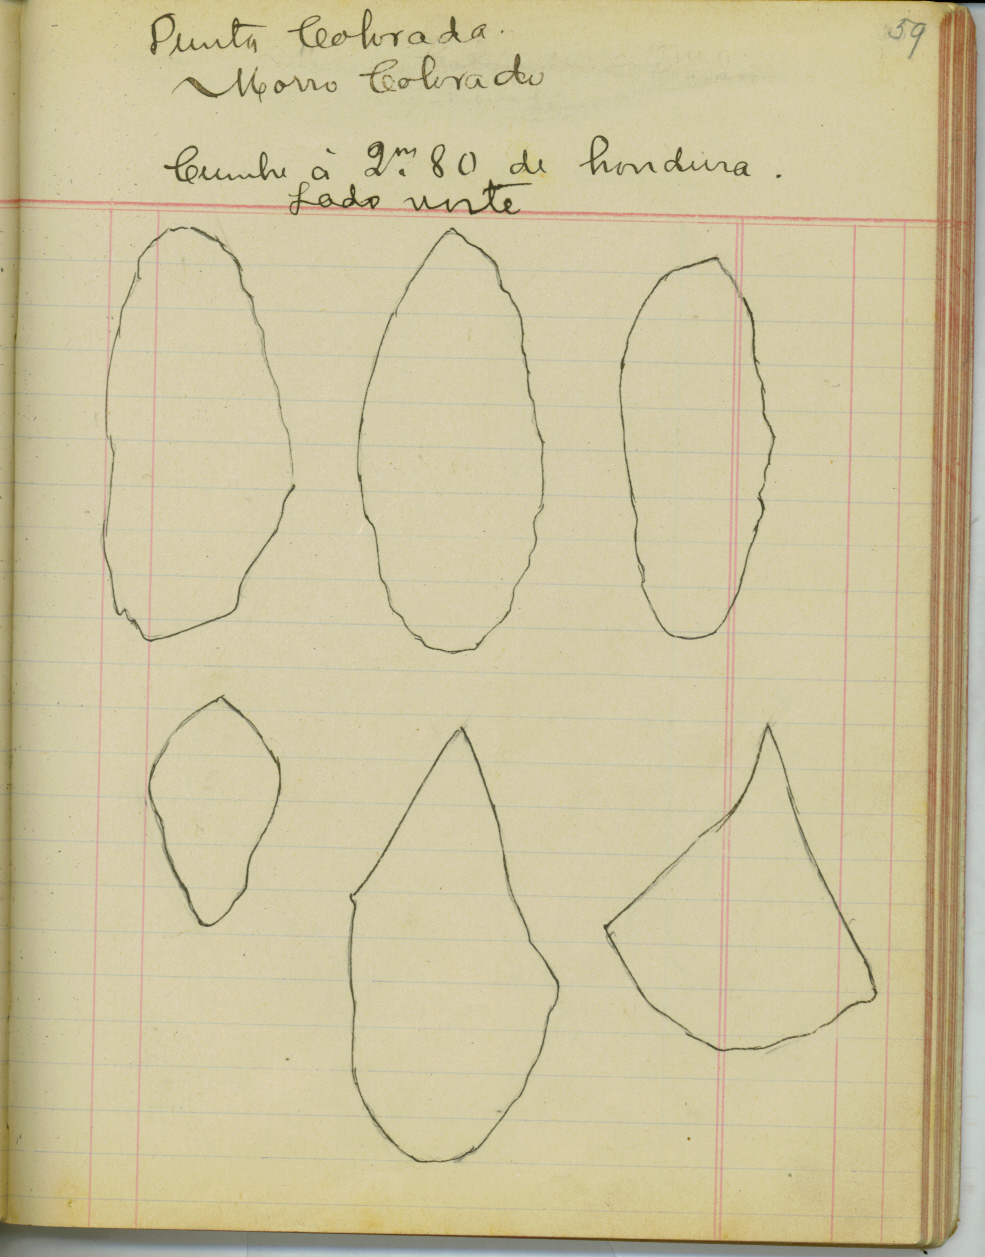 59
Punta Colorada.
Morro Colorado
Cumbre à 2.m 80 de hondura.
Lado norte